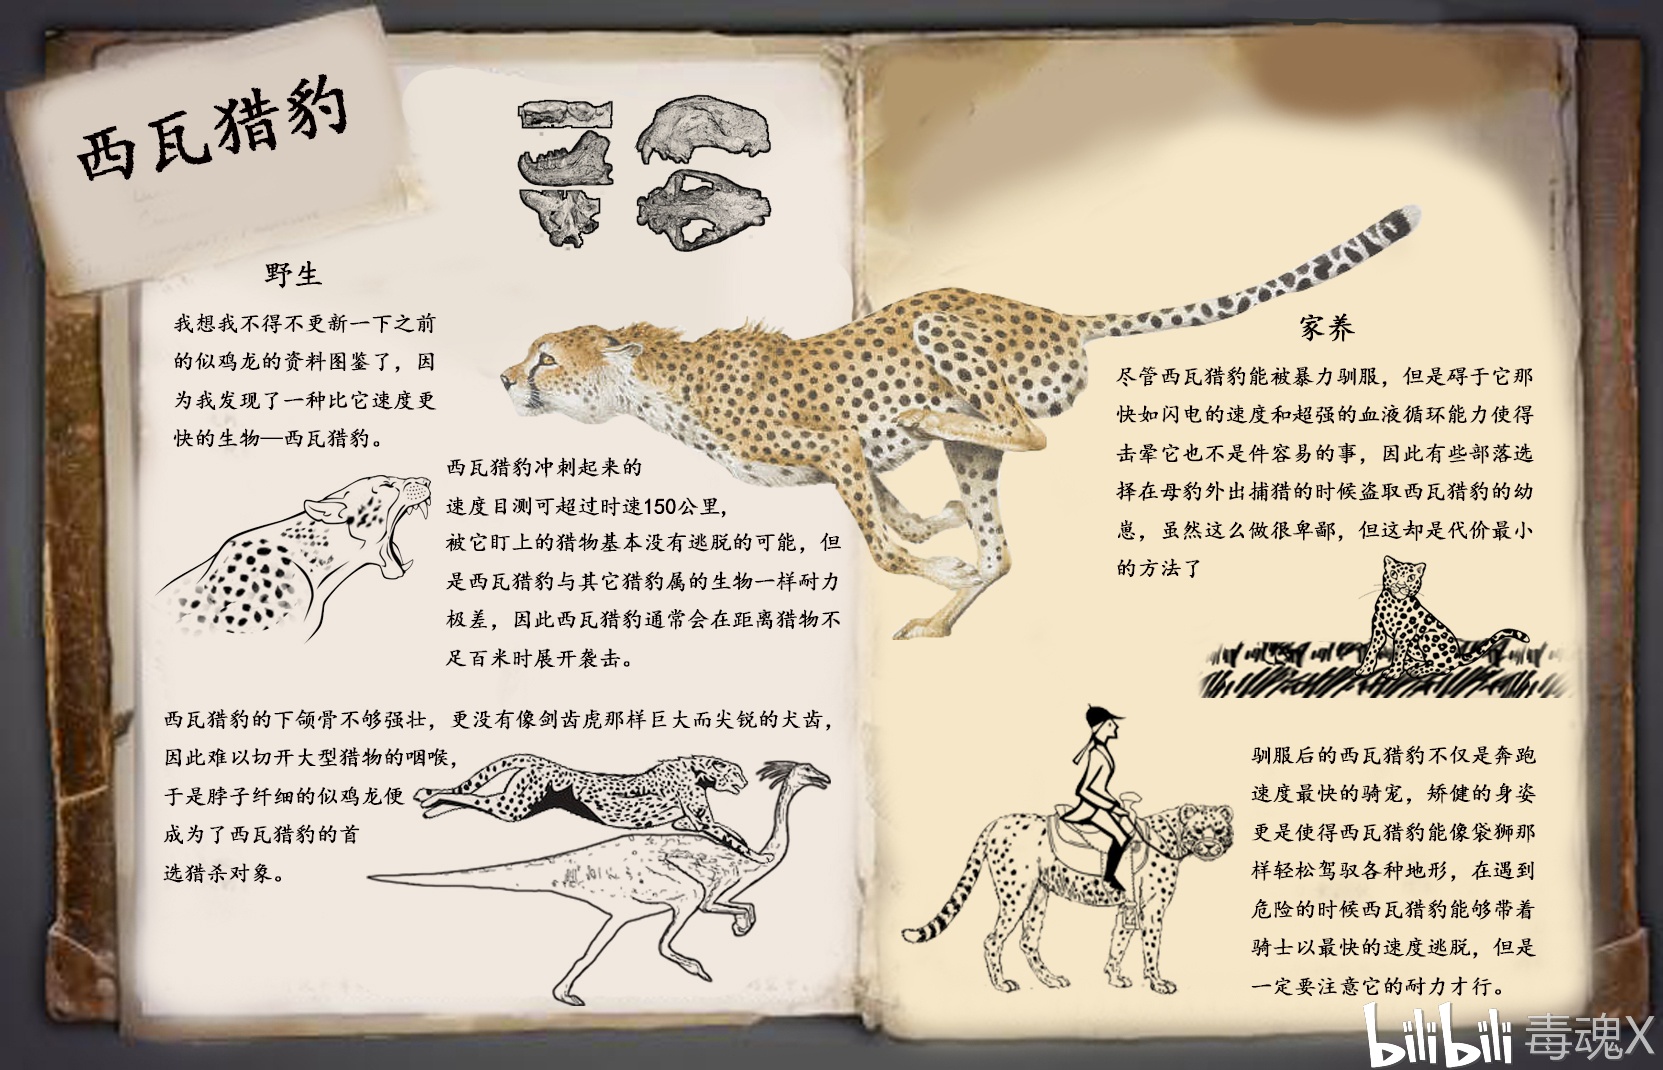 西瓦猎豹
野生
我想我不得不更新一下之前
的似鸡龙的资料图鉴了，因
为我发现了一种比它速度更
快的生物—西瓦猎豹。
西瓦猎豹冲刺起来的
速度目测可超过时速150公里，
被它盯上的猎物基本没有逃脱的可能，但
是西瓦猎豹与其它猎豹属的生物一样耐力
极差，因此西瓦猎豹通常会在距离猎物不
足百米时展开袭击。
西瓦猎豹的下颌骨不够强壮，更没有像剑齿虎那样巨大而尖锐的犬齿，
因此难以切开大型猎物的咽喉，
于是脖子纤细的似鸡龙便
成为了西瓦猎豹的首
选猎杀对象。
家养
尽管西瓦猎豹能被暴力驯服，但是碍于它那
快如闪电的速度和超强的血液循环能力使得
击晕它也不是件容易的事，因此有些部落选
择在母豹外出捕猎的时候盗取西瓦猎豹的幼
崽，虽然这么做很卑鄙，但这却是代价最小
的方法了
驯服后的西瓦猎豹不仅是奔跑
速度最快的骑宠，矫健的身姿
更是使得西瓦猎豹能像袋狮那
样轻松驾驭各种地形，在遇到
危险的时候西瓦猎豹能够带着
骑士以最快的速度逃脱，但是
一定要注意它的耐力才行。
bilibili 毒魂X